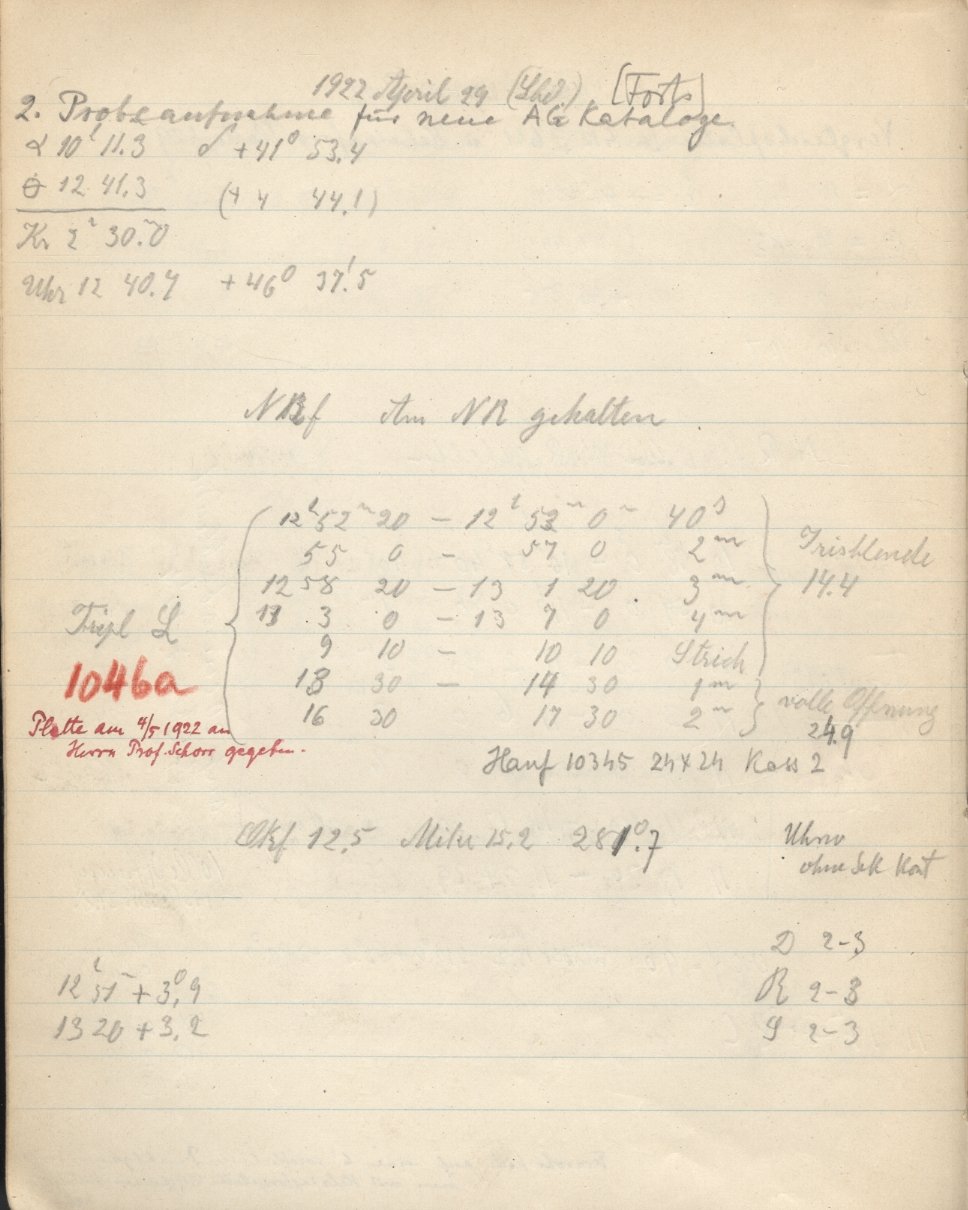 1922 April 29 (Lhd.) [Forts]
2. Probeaufnahme für neue AG Kataloge
α 10ʰ 11.3 δ +41° 53.4
Θ 12 41.3 (+ 4 44.1)
Kr 2ʰ 30.ᵐ0
Uhr 12 40.7 +46° 37.'5
NRf Am NR gehalten
12ʰ 52ᵐ 20 – 12ʰ 53ᵐ 0 40ˢ
55 0 – 57 0 2ᵐ
12 58 20 – 13 1 20 3ᵐ
13 3 0 – 13 7 0 4ᵐ
9 10 – 10 10 Strich
Irisblende
14.4
Tripl L
1046a
13 30 – 14 30 1ᵐ
16 30 17 30 2ᵐ
volle Öffnung
24.9
Platte am 4/5 1922 an
Herrn Prof. Schorr gegeben.
Hauf 10345 24x24 Kass 2
Okf 12.5 Mikr 15.2 281°.7
Uhrw
ohne Sek Kont
D 2-3
R 2-3
S 2-3
12ʰ 51ᵐ + 3°,9
13 20 + 3,2